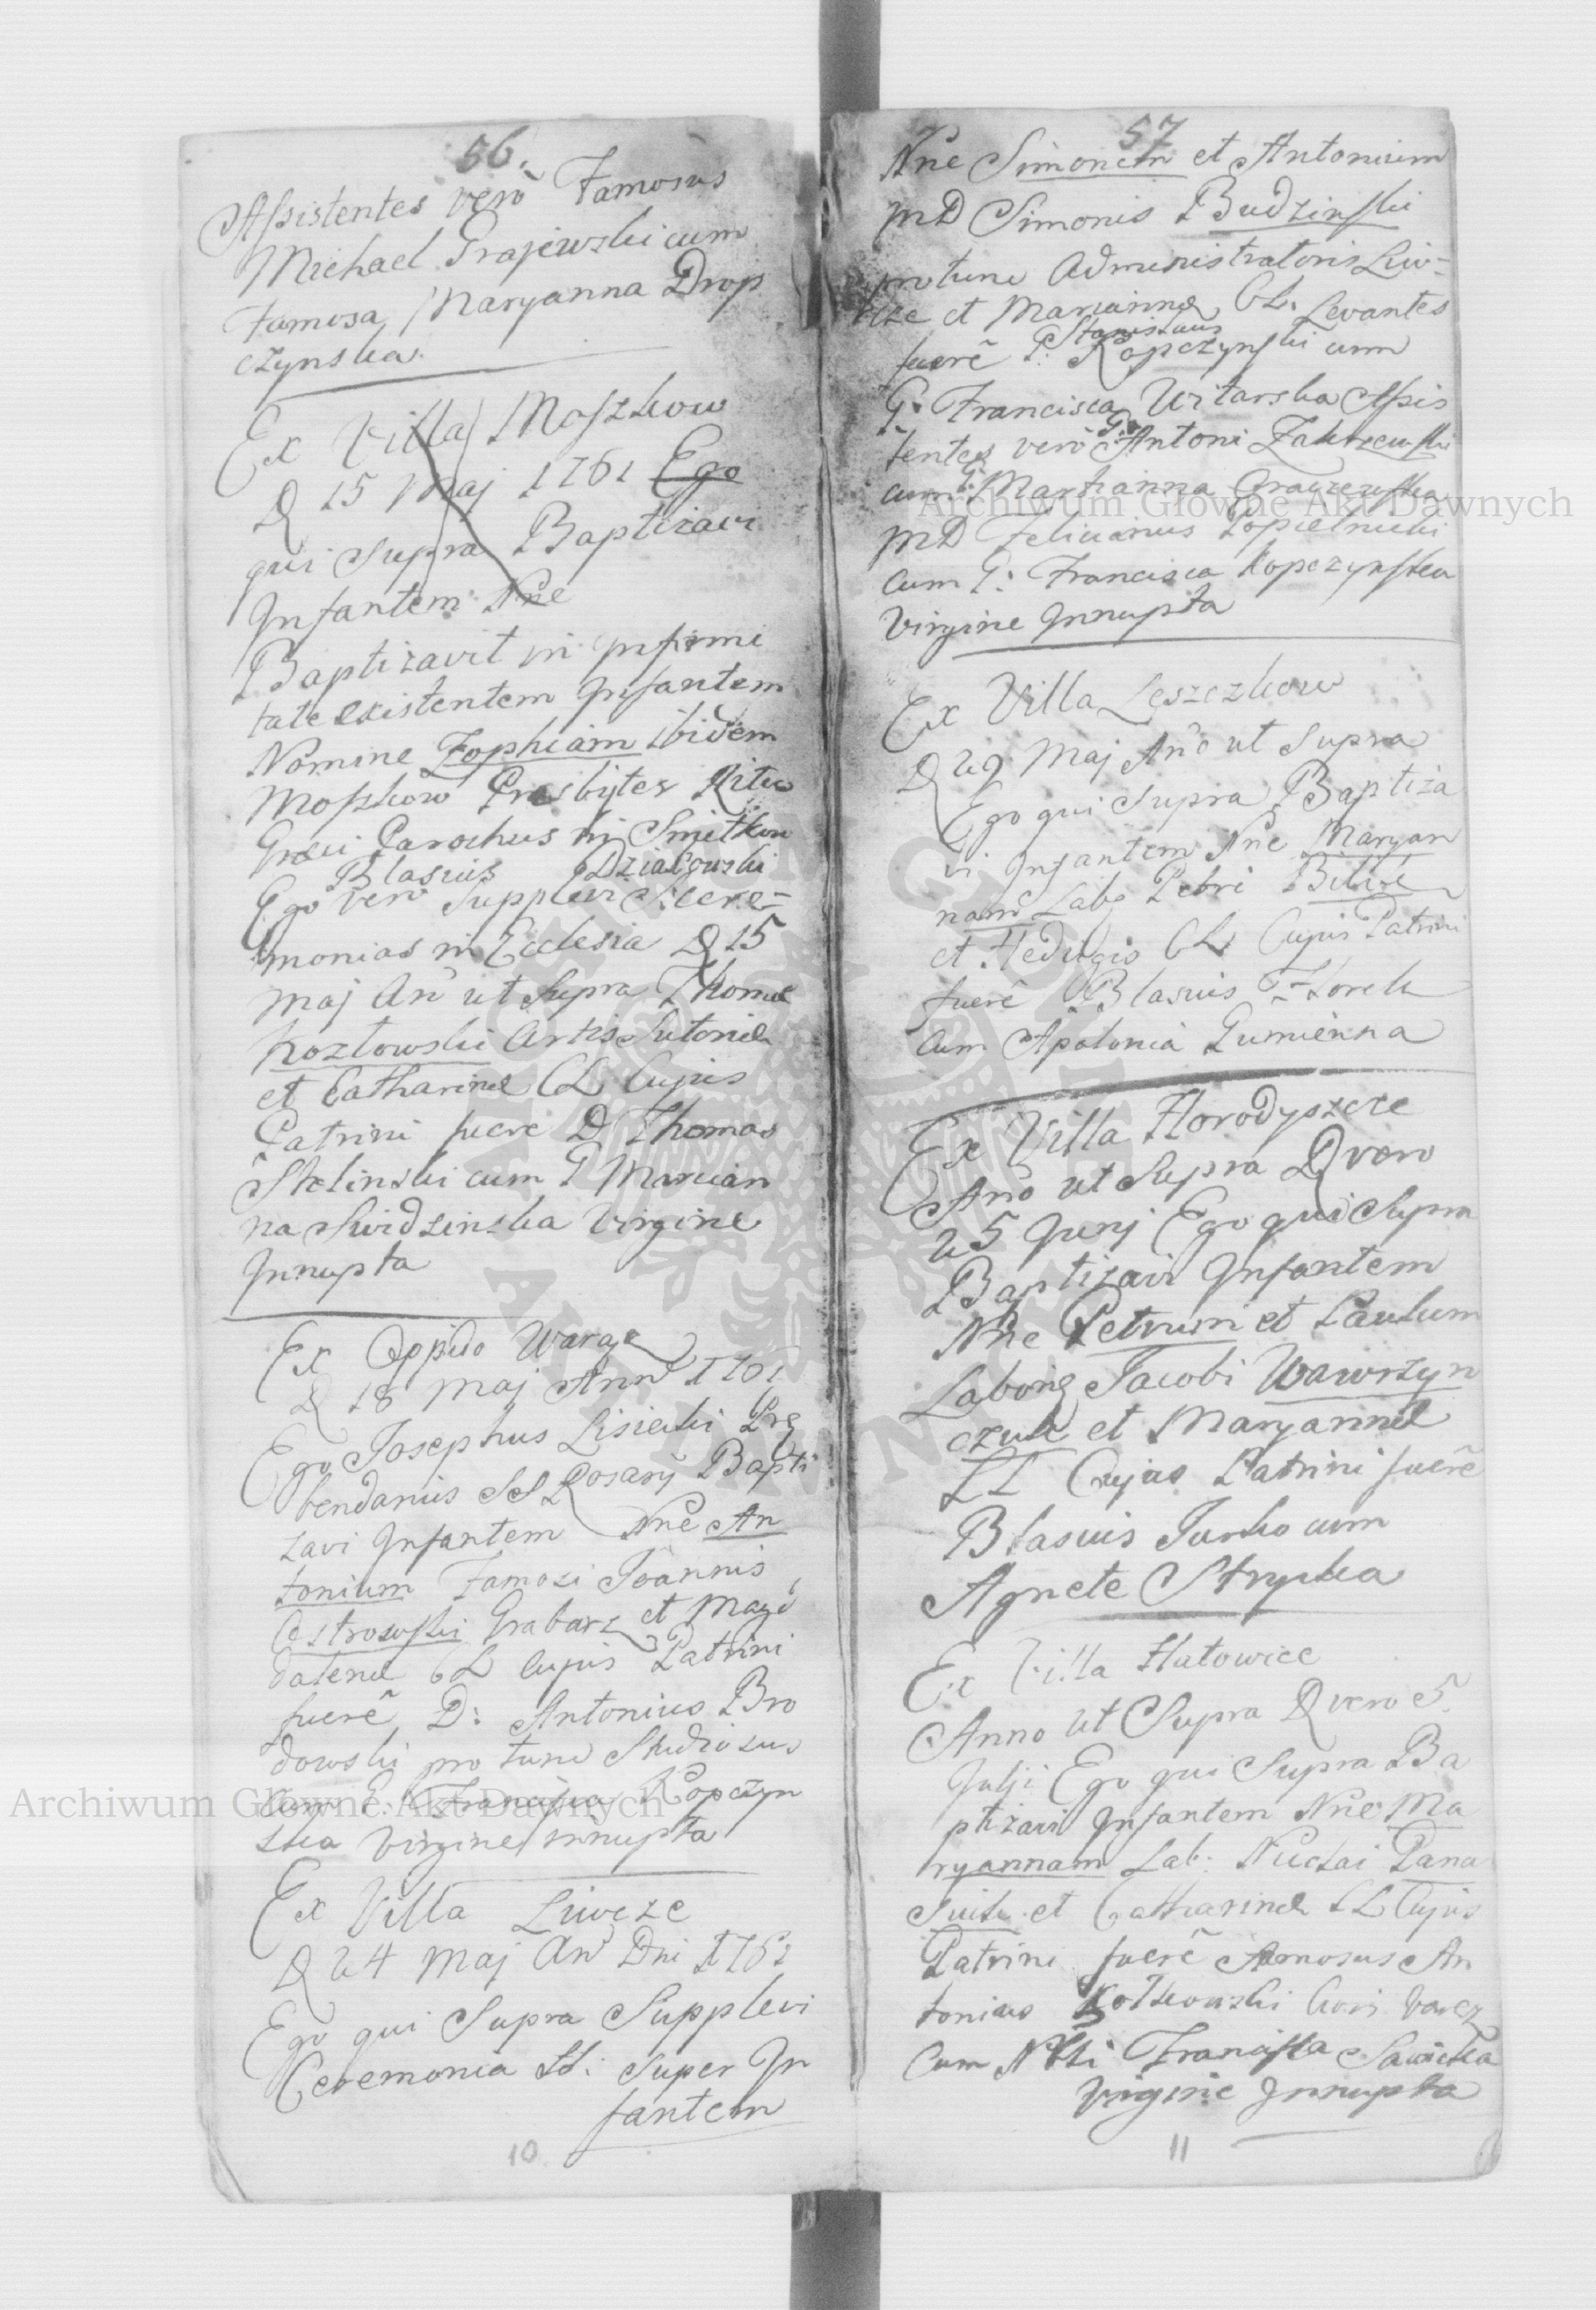 56.
Assistentes vero Famosus
Michael Grajewski cum
Famosa Maryanna Drop
czynska.
Ex Villa Moszkow
D 15 Maj 1761 Ego
qui supra Baptizavi
Infantem Nne
Baptizavit in infirmi
tate existentem Infantem
Nomine Zophiam ibidem
Moszkow Presbyter Ritus
Graeci Parochus in Smitkow
Blasius Dzialowski
Ego vero supplevi Cere-
monias in Ecclesia D 15
Maj An ut Supra Thomae
Kozlowski Artis Sutoriae
et Catharinae CL Cujus
Patrini fuere D Thomas
Skelinski cum G Marian
na Swidzinska Virgine
Innupta
Ex Oppido Waręz
D 18 Maj Ann 1761
Ego Josephus Lisiecki Pre
bendarius SS Rosarij Bapti
zavi Infantem Nne An
tonium Famosi Joannis
Ostrowski Grabarz et Mag
dalenae CL Cujus Patrini
fuerẽ D: Antonius Bro
dowski pro tunc Studiosus
cum Francisca Kopczyn
ska Virgine innupta
Ex Villa Liwcze
D 24 Maj An Dni 1761
Ego qui Supra Supplevi
Ceremonia super In
fantem
10
57
Nne Simonem et Antonium
MD Simonis Budzinski
protunc Administratoris Liw-
cze et Mariannae CL. Levantes
Stanislaus
fuerẽ Kopczynski cum
G. Francisca Witarska Assis
tentes vero G. Antoni Zakrzewski
cum G. Marianna Graczewska
MD Felicianus Popielnicki
cum G: Francisca Kopczynska
Virgine Innupta
Ex Villa Leszczkow
D 29 Maj Ano ut Supra
Ego qui Supra Baptiza
vi Infantem Nne Maryan
nam Lab Petri
et Hedvigis CL Cujus Patrini
fuerẽ Blasius
cum Apolonia Gumienna
Ex Villa Horodyszcze
Ano ut Supra D vero
25 Junj Ego qui Supra
Baptizavi Infantem
Nne Petrum et Paulum
Labors Jacobi Wawrzyn
czuk et Maryannae
LL Cujus Patrini fuerẽ
Blasius Jurko cum
Agnete Strycka
Ex Villa Hatowice
Anno ut Supra D vero 5
Julji Ego qui Supra Ba
ptizavi Infantem Nne Ma
ryannam Lab: Nicolai Pana
siuk et Catharinae LL Cujus
Patrini fuerẽ Famosus An
tonius Kotkowski
Cum Francisca Sawicka
Virgine Innupta
11
Archiwum Główne Akt Dawnych
Archiwum Główne Akt Dawnych